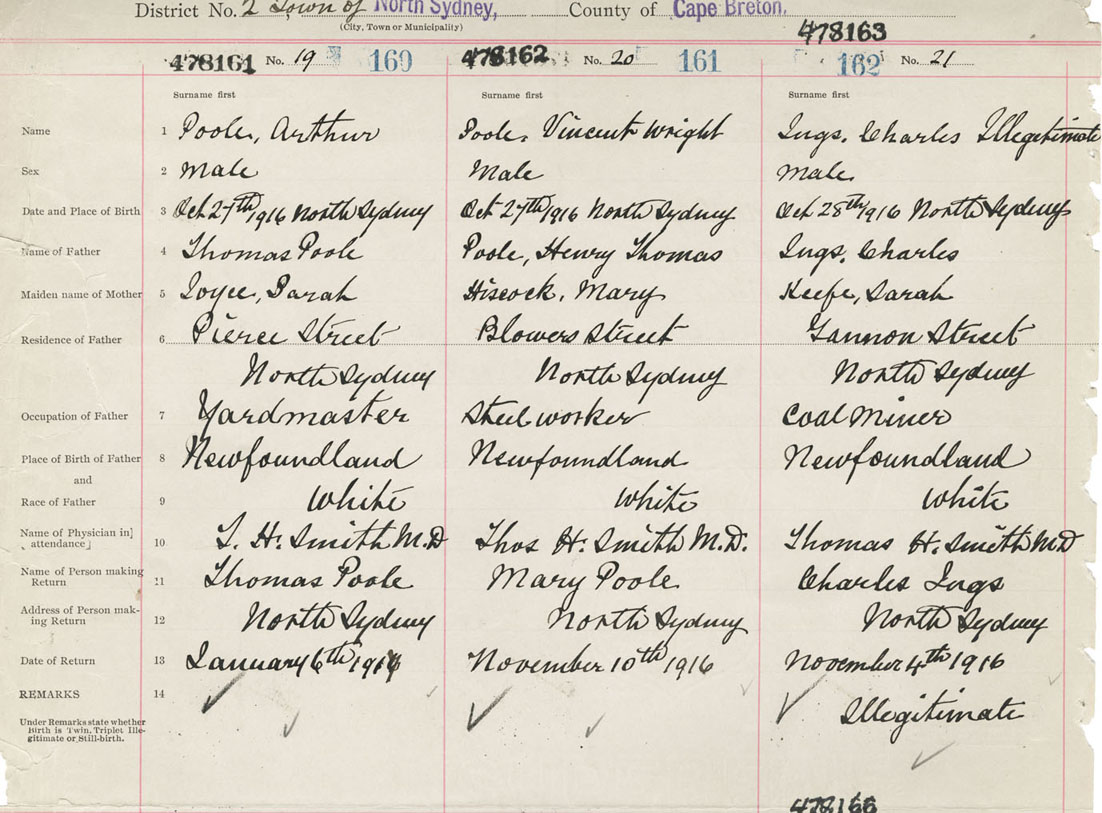 District No. 2 Town of North Sydney, County of Cape Breton.
(City, Town or Municipality)
478163
478161 No. 19 160 478162 No. 20 161 162 No. 21
Surname first Surname first Surname first
Name 1 Poole, Arthur Poole, Vincent Wright Ings, Charles Illegitimate
Sex 2 Male Male Male
Date and Place of Birth 3 Oct 27th 1916 North Sydney Oct 27th 1916 North Sydney Oct 28th 1916 North Sydney
Name of Father 4 Thomas Poole Poole, Henry Thomas Ings, Charles
Maiden name of Mother 5 Joyce, Sarah Hiscock, Mary Keefe, Sarah
Residence of Father 6 Pierce Street Blowers Street Gannon Street
North Sydney North Sydney North Sydney
Occupation of Father 7 Yardmaster Steel worker Coal Miner
Place of Birth of Father 8 Newfoundland Newfoundland Newfoundland
and
Race of Father 9 White White White
Name of Physician in 10 T. H. Smith M.D Thos H. Smith M.D. Thomas H. Smith M.D
attendance
Name of Person making 11 Thomas Poole Mary Poole Charles Ings
Return
Address of Person mak- 12 North Sydney North Sydney North Sydney
ing Return
Date of Return 13 January 6th November 10th 1916 November 4th 1916
REMARKS 14
Illegitimate
Under Remarks state whether
Birth is Twin, Triplet Ille-
gitimate or Still-birth.